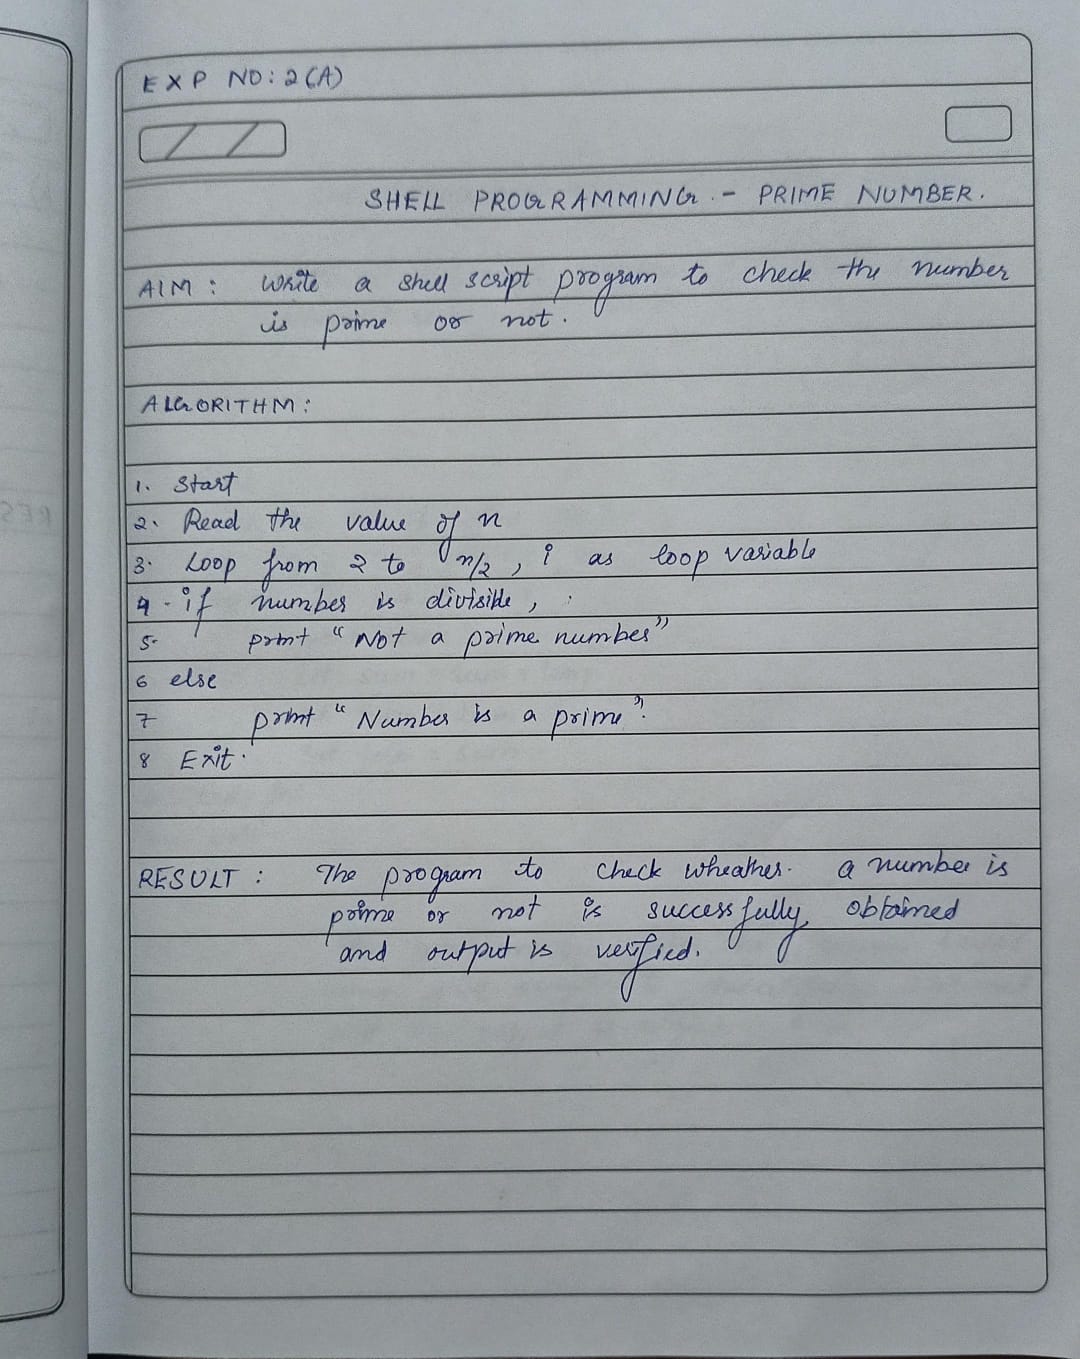 EXP NO: 2(A)
SHELL PROGRAMMING. - PRIME NUMBER.
AIM : Write a shell script program to check the number
is prime or not.
ALGORITHM:
1. Start
2. Read the value of n
3. Loop from 2 to n/2, i as loop variable
4. if number is divisible,
5. print "Not a prime number"
6 else
7 print "Number is a prime".
8 Exit.
RESULT : The program to check wheather. a number is
prime or not is successfully obtained
and output is verified.